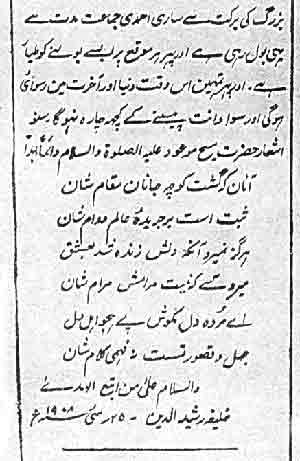 بزرگ کی برکت سے ساری احمدی جماعت مدت سے
یہی بول رہی ہے اور پھر ہر موقع پر یسے بولنے کو طیار
ہے۔ اور پھر تمہیں اس وقت دنیا اور آخرت میں رسوائی
ہوگی اور سوا دانت پیسنے کے کچھ چارہ نہوگا سنو
اشعار حضرت مسیح موعود علیہ الصلوۃ والسلام دائما ابدا
آنان کہ گشت کوچہ جانان مقام شان
ثبت است بر جریدۂ عالم دوام شان
ہرگز نمیرد آنکہ دلش زندہ شد بعشق
میرد کسے کہ نیست مرامش مرام شان
اے مردہ دل مکوش پے ہجو اہل دل
جہل و قصور تست نہ فہمی کلام شان
والسلام علی من اتبع الہدے
خلیفہ رشید الدین - ۲۵ مئی ۱۹۰۸ء